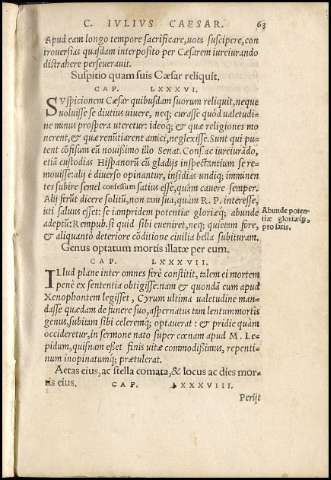 C. IVLIVS CAESAR. 63
Apud eam longo tempore sacrificare, uota suscipere, con
trouersias quasdam interposito per Cæsarem iureiurando
distrahere perseuerauit.
Suspitio quam suis Cæsar reliqust.
CAP. LXXXVI.
SVspicionem Cæsar quibusdam suorum reliquit, neque
uoluisse se diutius uiuere, neq; curasse quòd ualetudi=
ne minus prospera uteretur: ideoq; & quæ religiones mo
nerent, & quæ renūtiarent amici, neglexisse. Sunt qui pu=
tent cōfisum eū nouissimo illo Senat. Cons. ac iureiurādo,
etiā custodias Hispanorū cū gladijs inspectantium se re=
mouisse: alij è diuerso opinantur, insidias undiq; imminen
tes subire semel confessum satius esse, quàm cauere semper.
Alij ferūt dicere solitū, non tam sua, quàm R. P. interesse,
uti saluus esset: se iampridem potentiæ gloriæq; abunde
adeptū: Rempub. si quid sibi eueniret, neq; quietam fore,
& aliquantò deteriore cōditione ciuilia bella subituram.
Abunde poten-
tiæ gloriæq;,
pro satis.
Genus optatum mortis illatæ per eum.
CAP. LXXXVII.
ILlud plane inter omnes ferè constitit, talem ei mortem
penè ex sententia obtigisse: nam & quondā cum apud
Xenophontem legisset, Cyrum ultima ualetudine man=
dasse quædam de funere suo, aspernatus tam lentum mortis
genus, subitam sibi celeremq; optauerat: & pridie quàm
occideretur, in sermone nato super cœnam apud M. Le=
pidum, quisnam esset finis uitæ commodissimus, repenti=
num inopinatumq; prætulerat.
Aetas eius, ac stella comata, & locus ac dies mor
tis eius. CAP. LXXXVIII.
Perijt